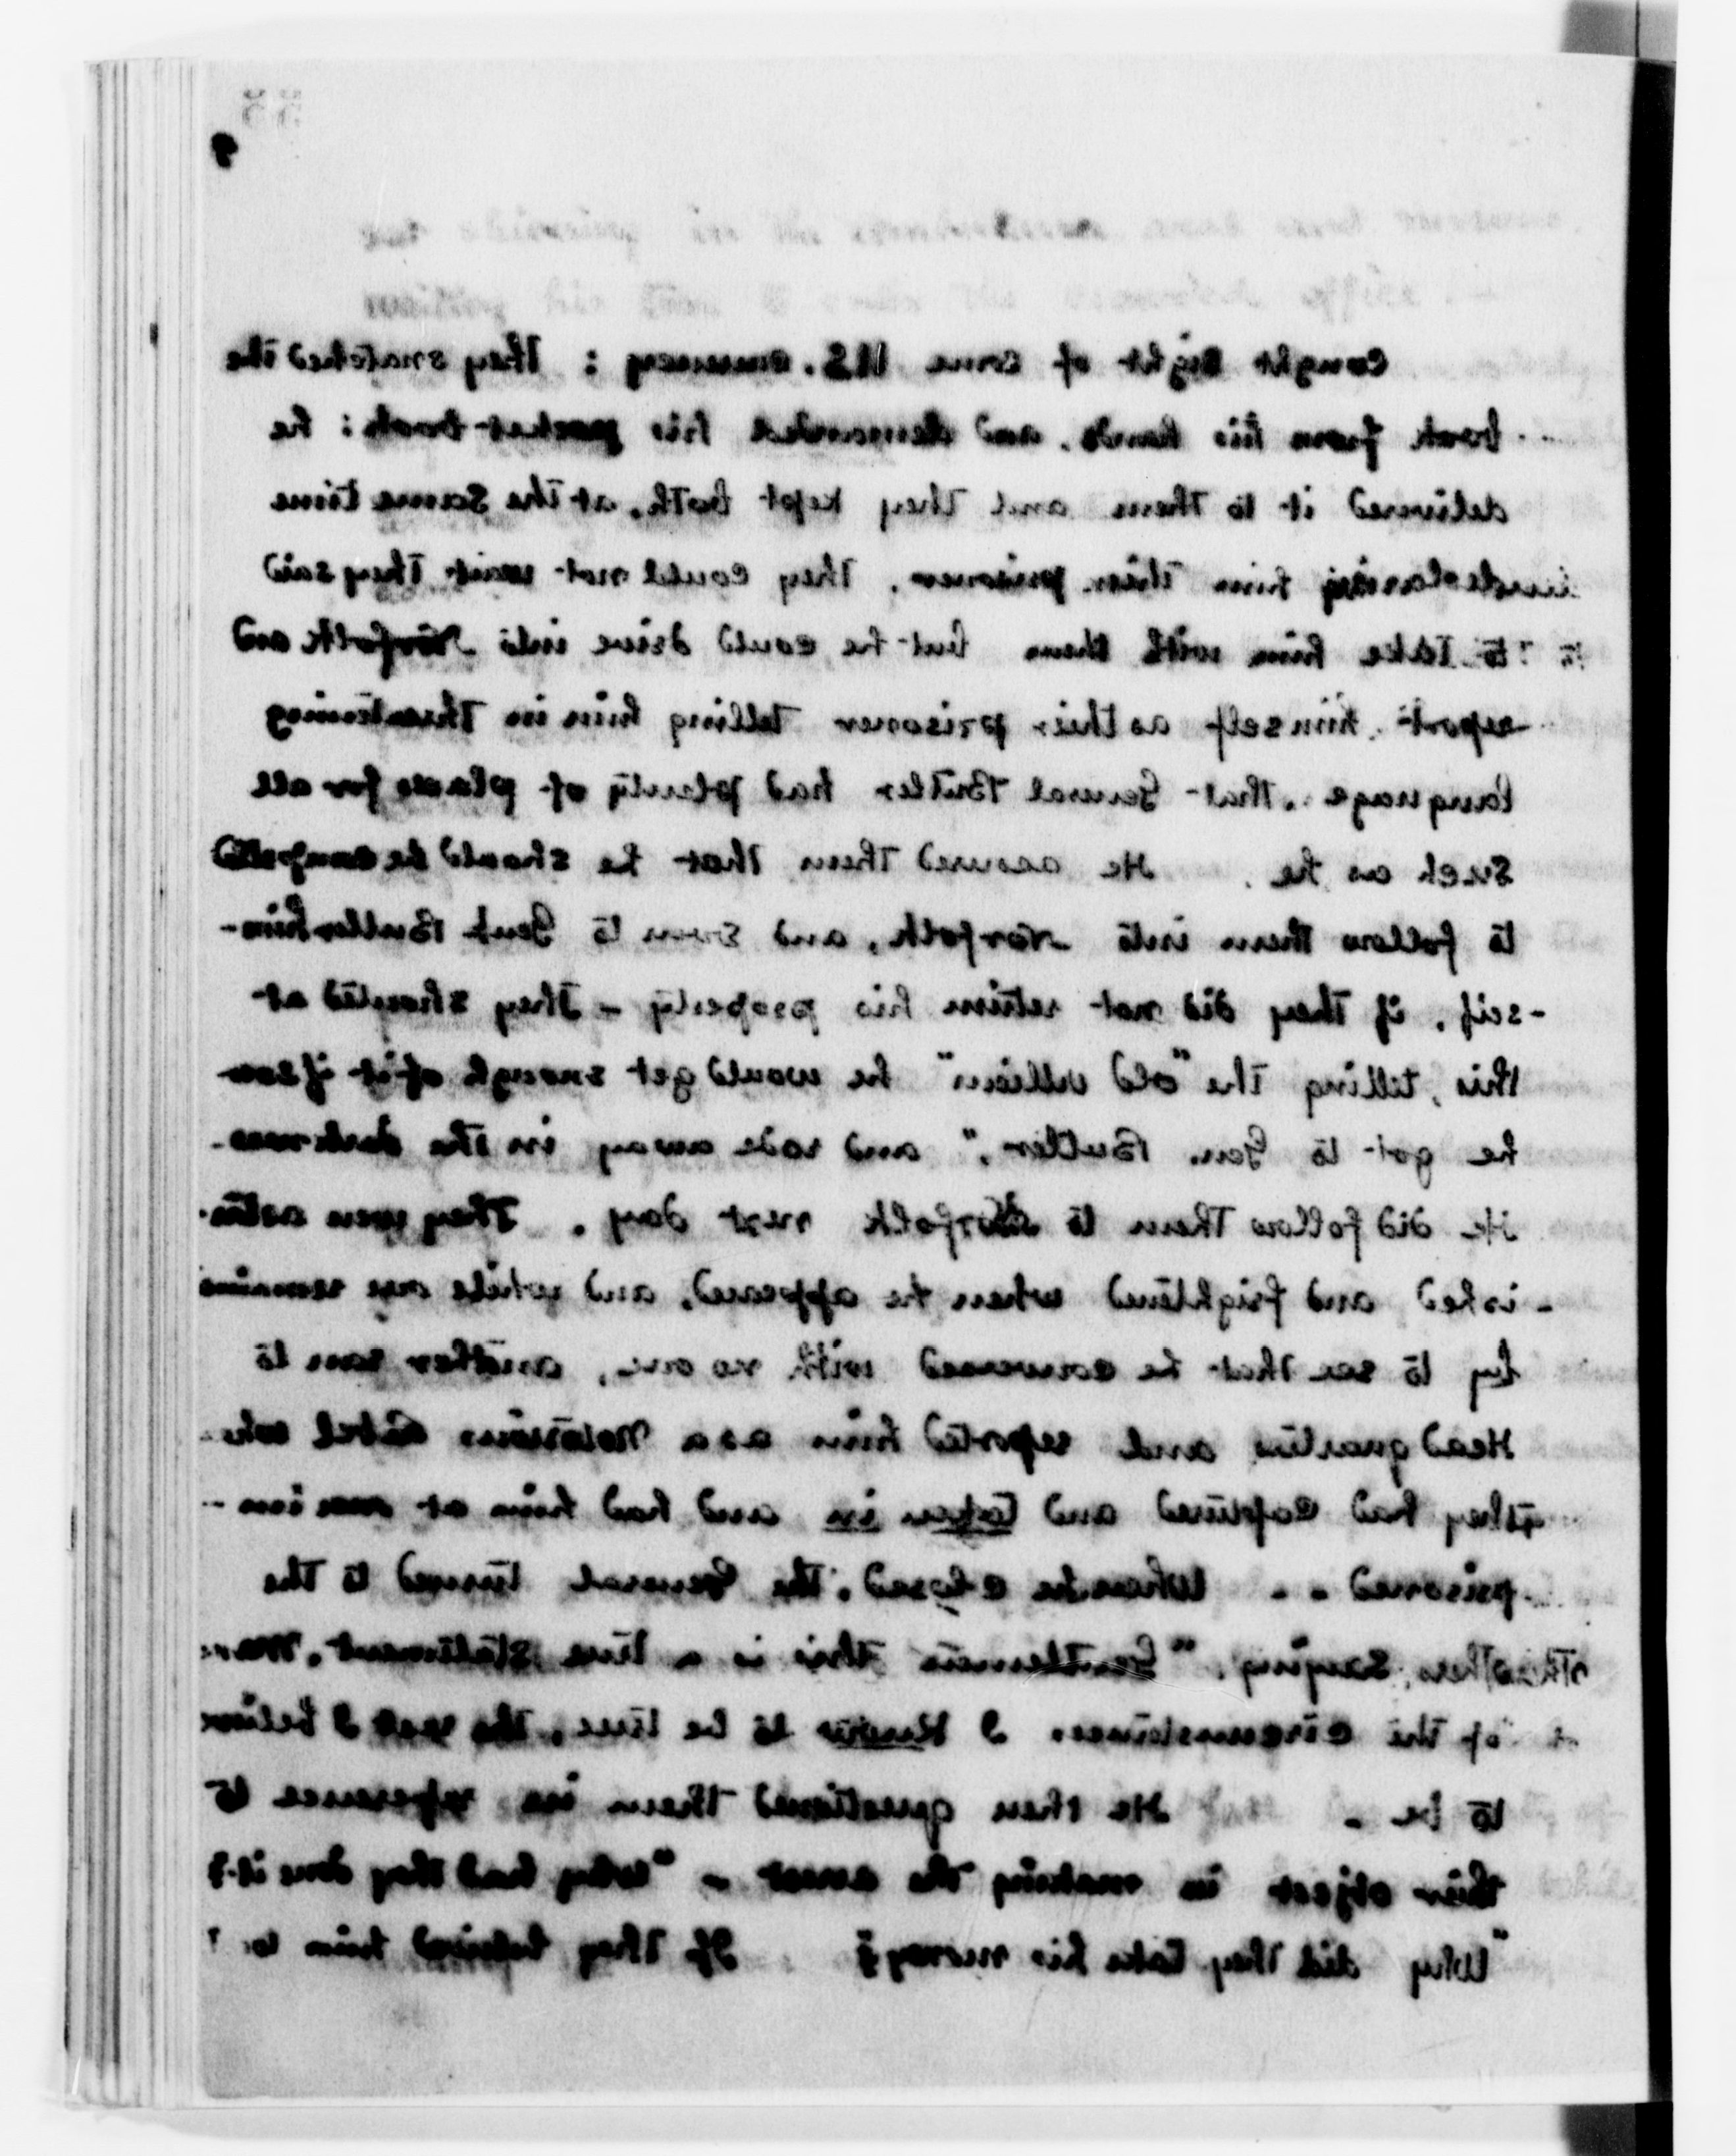 55
9
caught sight of some U.S. money : They snatched the
book from his hands, and demanded his pocket-book ; he
delivered it to them and They kept both, at the same time
declaring him their prisoner. They could not wait They said
to take him with them but he could drive into Norfolk and
report himself as their prisoner telling him in Threatening
language, That General Butler had plenty of places for all
such as he. He assured Them that he should be compelled
to follow them into Norfolk, and soon to Genl Butler him-
-self, if They did not return his property - They shouted at
this, telling The "old villian" he would get enough of it if
he got to Gen. Butler," and rode away in the darkness-
He did follow Them to Norfolk next day. They were aston-
-ished and frightened when he appeared, and while one remained
by to see that he conversed with no one, another ran to
Head quarters and reported him as a Notorious rebel who
they had captured and taken in and had him at once im-
prisoned - - When he closed, The General turned to the
others, saying, "Gentlemen this is a true statement,
of the circumstances I know to be true, the rest I believe
to be - He then questioned Them in reference to
their object in making the arrest - "Why had they done it?
"Why did they take his money? If They believed him to